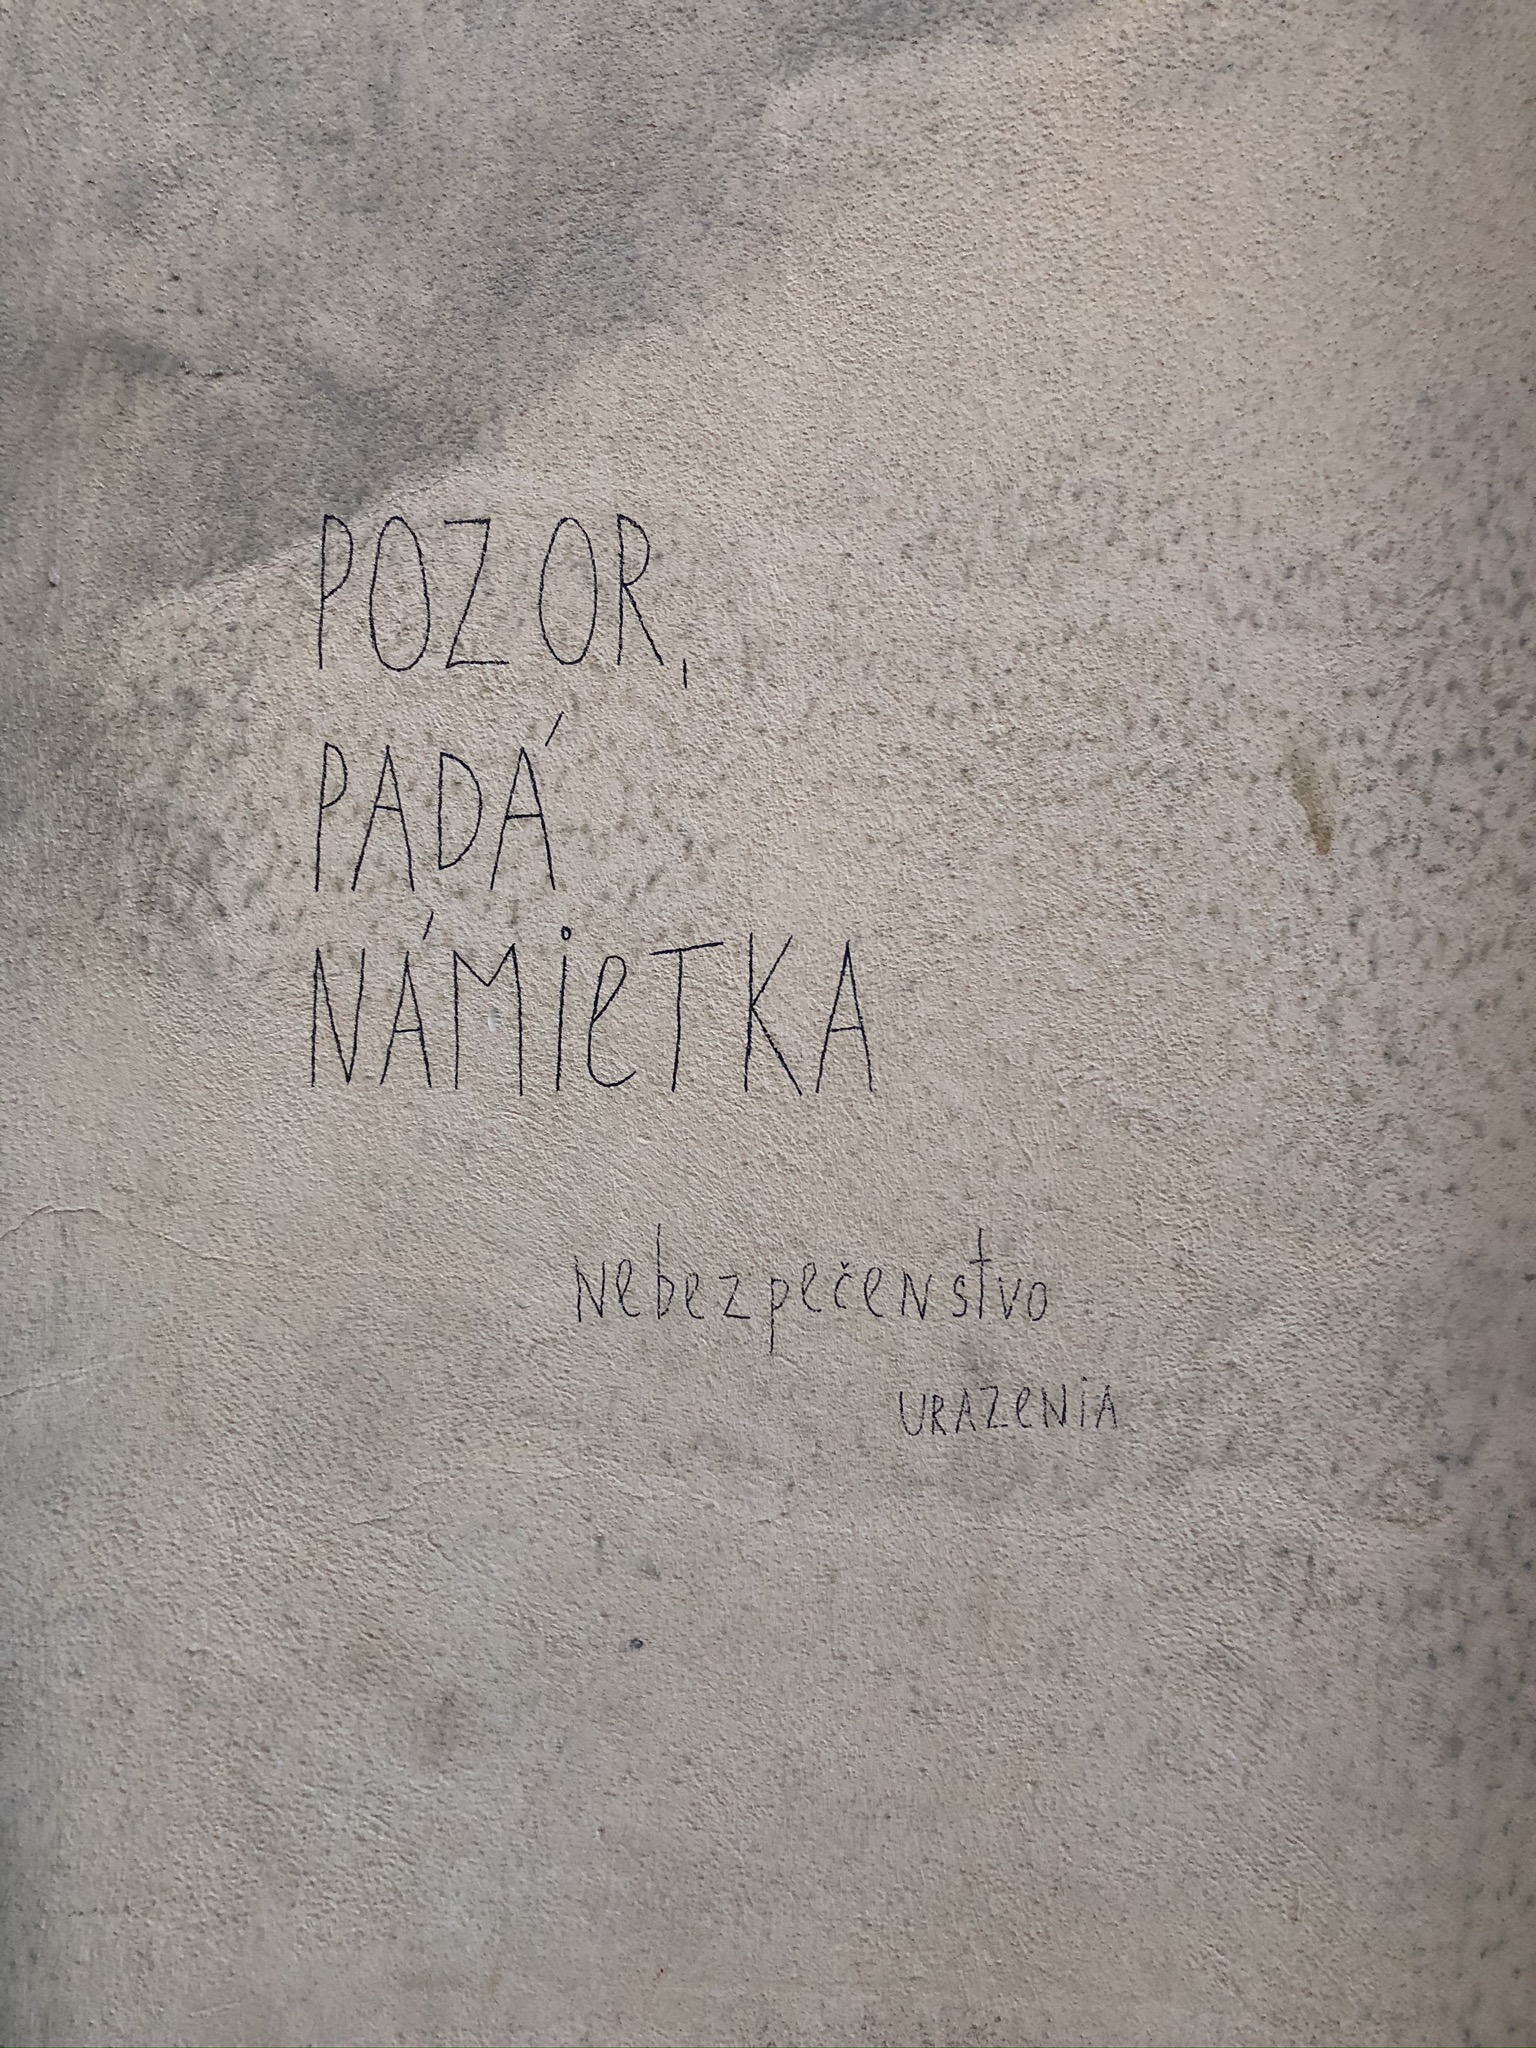 POZOR,
PADÁ
NÁMIETKA
Nebezpečenstvo
URAZENIA